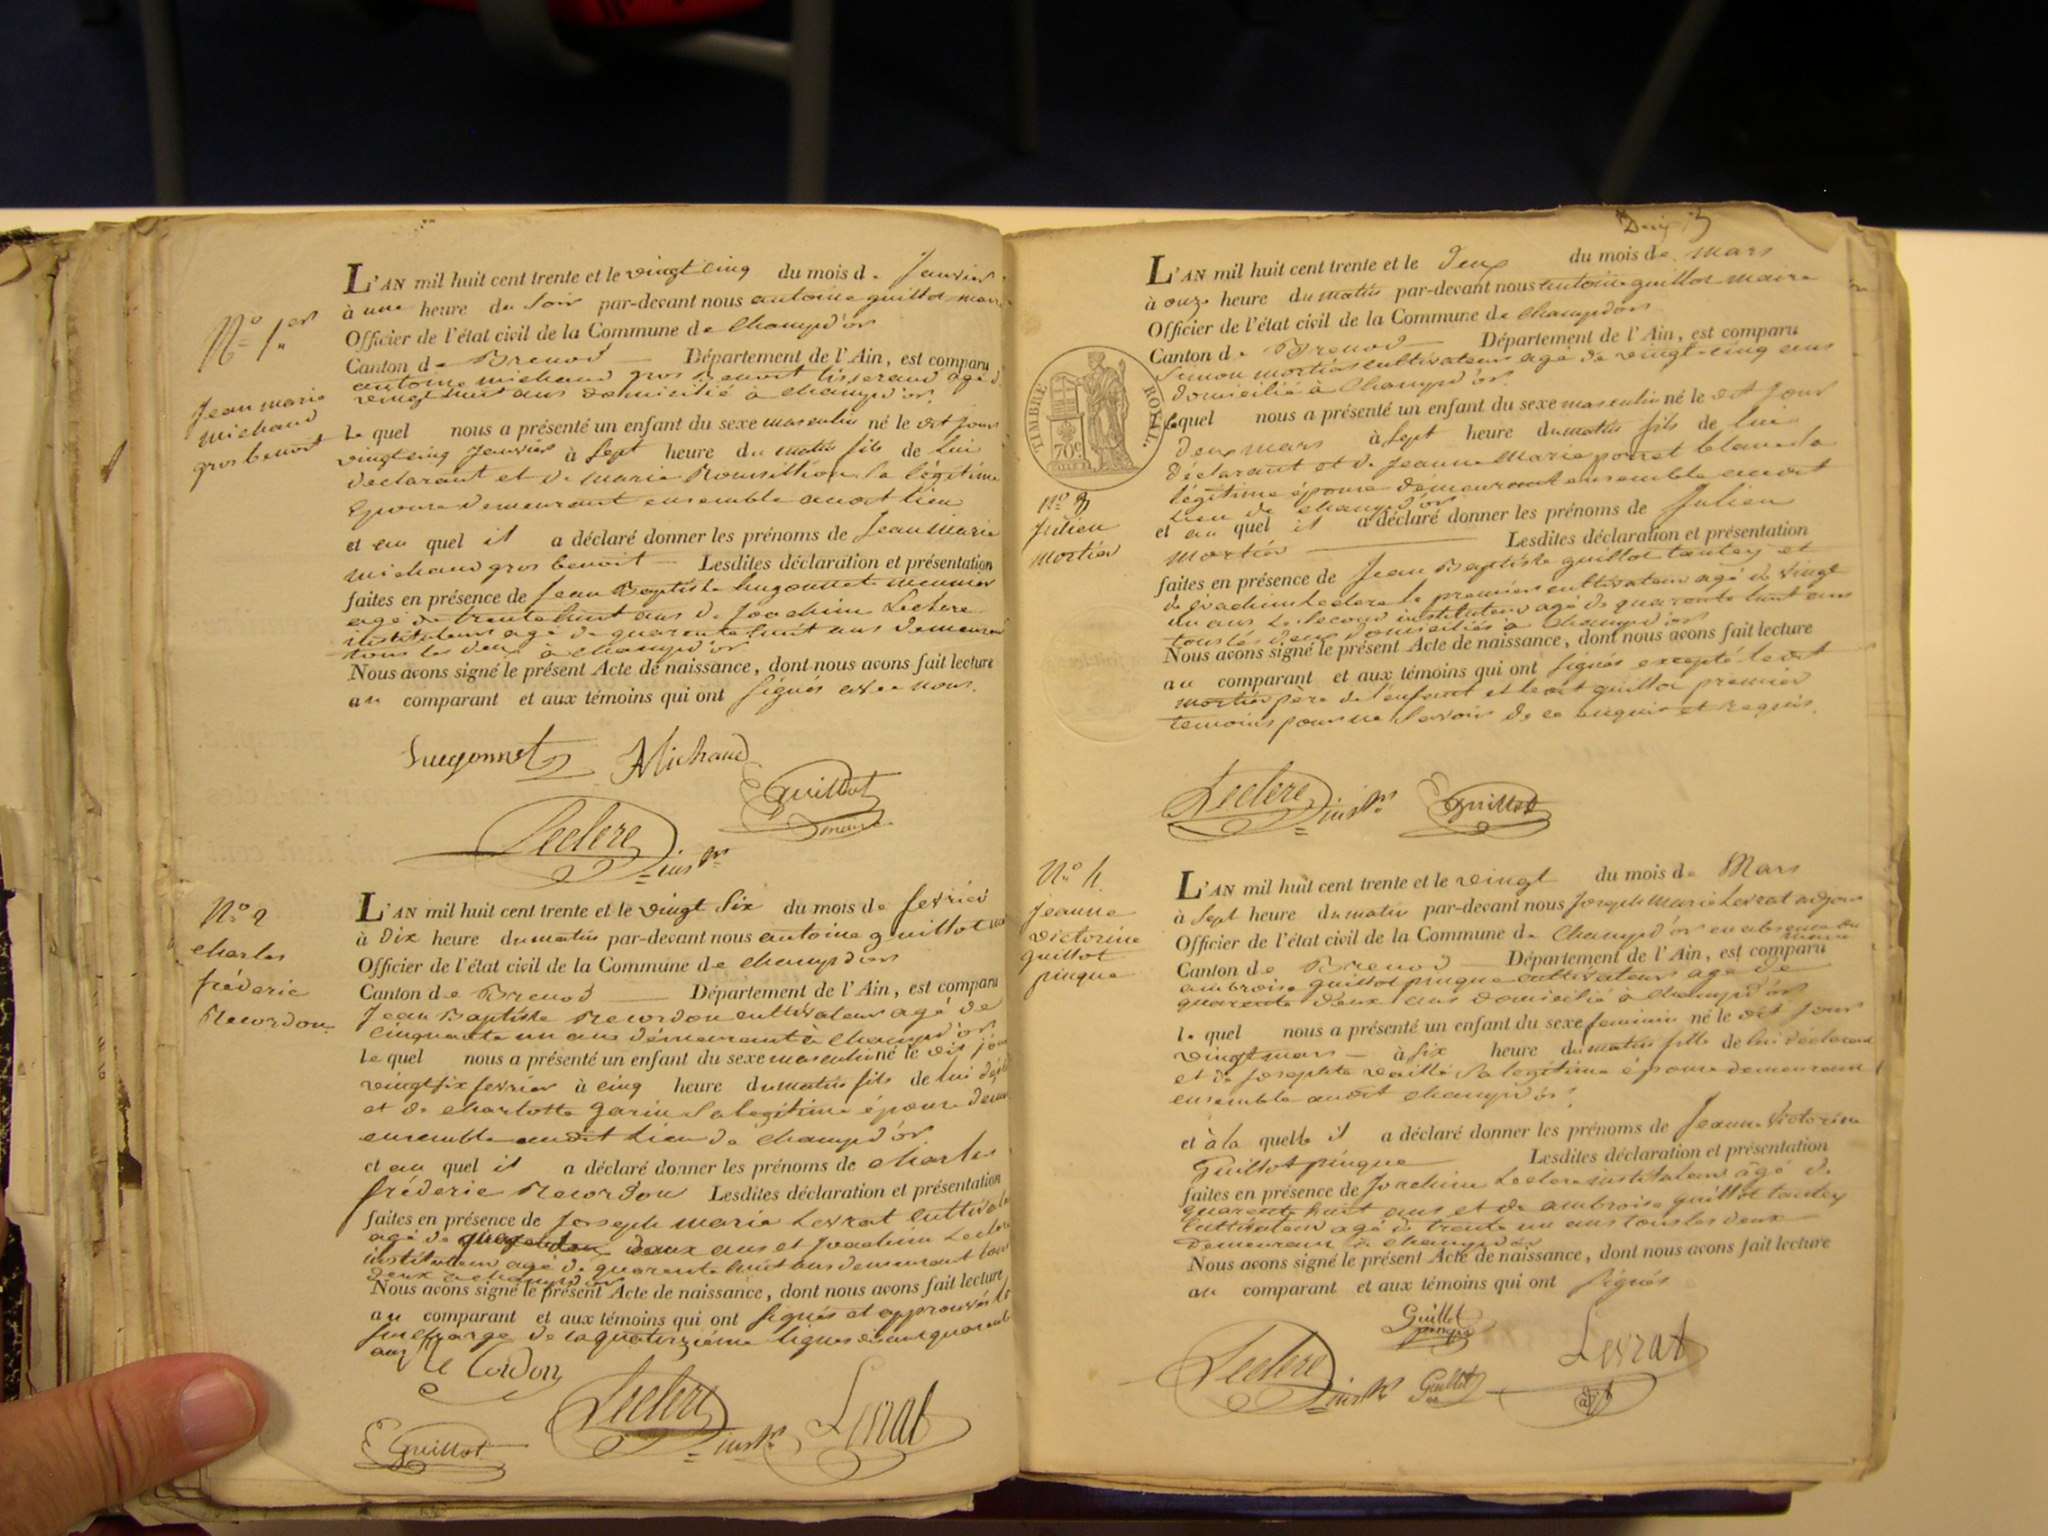 L'AN mil huit cent trente et le vingt cinq du mois de Janvier
à une heure du soir par-devant nous antoine guillot maire
Officier de l'état civil de la Commune de Champd'or
Canton de Brenod Département de l'Ain, est comparu
antoine michaud gros benoit tisserand agé de
vingt huit ans domicilié à champd'or
N.o 1.er
Jean marie
michaud
gros benoit
le quel nous a présenté un enfant du sexe masculin né le dit jour
vingt cinq Janvier à sept heure du matin fils de lui
déclarant et de marie Roussillion sa légitime
Epouse demeurant ensemble audit lieu
et au quel il a déclaré donner les prénoms de Jean Marie
michaud gros benoit Lesdites déclaration et présentation
faites en présence de Jean Baptiste hugonnet meunier
agé de trente huit ans de Joachim Leclerc
instituteur agé de quarante huit ans demeurant
tous les deux à champd'or
Nous avons signé le présent Acte de naissance, dont nous avons fait lecture
au comparant et aux témoins qui ont signés avec nous.
hugonnet Michaud
Guillot
maire
Leclerc instr
N.o 2
charles
fréderic
Recordon
L'AN mil huit cent trente et le vingt six du mois de fevrier
à dix heure du matin par-devant nous antoine guillot
Officier de l'état civil de la Commune de champd'or
Canton de Brenod Département de l'Ain, est comparu
Jean Baptiste Recordon cultivateur agé de
cinquante un ans démeurant à Champd'or
le quel nous a présenté un enfant du sexe masculin né le dit jour
vingt six fevrier à cinq heure du matin fils de lui
et de charlotte garin sa légitime épouse
ensemble audit lieu de champd'or
et au quel il a déclaré donner les prénoms de charles
fréderic Recordon Lesdites déclaration et présentation
faites en présence de Joseph marie Levrat
agé de deux ans et Joachim Leclerc
instituteur agé de quarante huit ans demeurant tous
deux à champd'or
Nous avons signé le présent Acte de naissance, dont nous avons fait lecture
au comparant et aux témoins qui ont signés et approuvés la
surcharge de la quatorzième lignes
Guillot Leclerc instr Levrat
L'AN mil huit cent trente et le deux du mois de mars
à onze heure du matin par-devant nous antoine guillot maire
Officier de l'état civil de la Commune de champd'or
Canton de Brenod Département de l'Ain, est comparu
Simon mortier cultivateur agé de vingt-cinq ans
domicilié à Champd'or
TIMBRE ROYAL.
70c
lequel nous a présenté un enfant du sexe masculin né le dit jour
deux mars à sept heure du matin fils de lui
déclarant et de Jeanne Marie poncet blanc sa
légitime épouse demeurant ensemble audit
lieu de champd'or
N.o 3
Julien
mortier
et au quel il a déclaré donner les prénoms de Julien
mortier Lesdites déclaration et présentation
faites en présence de Jean Baptiste guillot tantey et
de Joachim Leclerc le premier cultivateur agé de vingt
un ans le second instituteur agé de quarante huit ans
tous les deux domiciliés à Champd'or
Nous avons signé le présent Acte de naissance, dont nous avons fait lecture
au comparant et aux témoins qui ont signés excepté ledit
mortier père de l'enfant et ledit guillot premier
temoins pour ne savoir de ce enquis et requis.
Leclerc instr Guillot
N.o 4.
Jeanne
victorine
guillot
pingue
L'AN mil huit cent trente et le vingt du mois de Mars
à sept heure du matin par-devant nous Joseph Marie Levrat adjoint
Officier de l'état civil de la Commune de Champd'or en absence du
maire
Canton de Brenod Département de l'Ain, est comparu
ambroise guillot pingue cultivateur agé de
quarante deux ans domicilié à Champd'or
le quel nous a présenté un enfant du sexe feminin né le dit jour
vingt mars à six heure du matin fille de lui déclarant
et de Josephte vaillé sa légitime épouse demeurant
ensemble audit champd'or
et à la quelle il a déclaré donner les prénoms de Jeanne Victorine
Guillot pingue Lesdites déclaration et présentation
faites en présence de Joachim Leclerc instituteur âgé de
quarante huit ans et de ambroise guillot tantey
cultivateur agé de trente un ans tous les deux
demeurant à champd'or
Nous avons signé le présent Acte de naissance, dont nous avons fait lecture
au comparant et aux témoins qui ont signés
Guillot
pingue
Leclerc instr Guillot Levrat
adjt